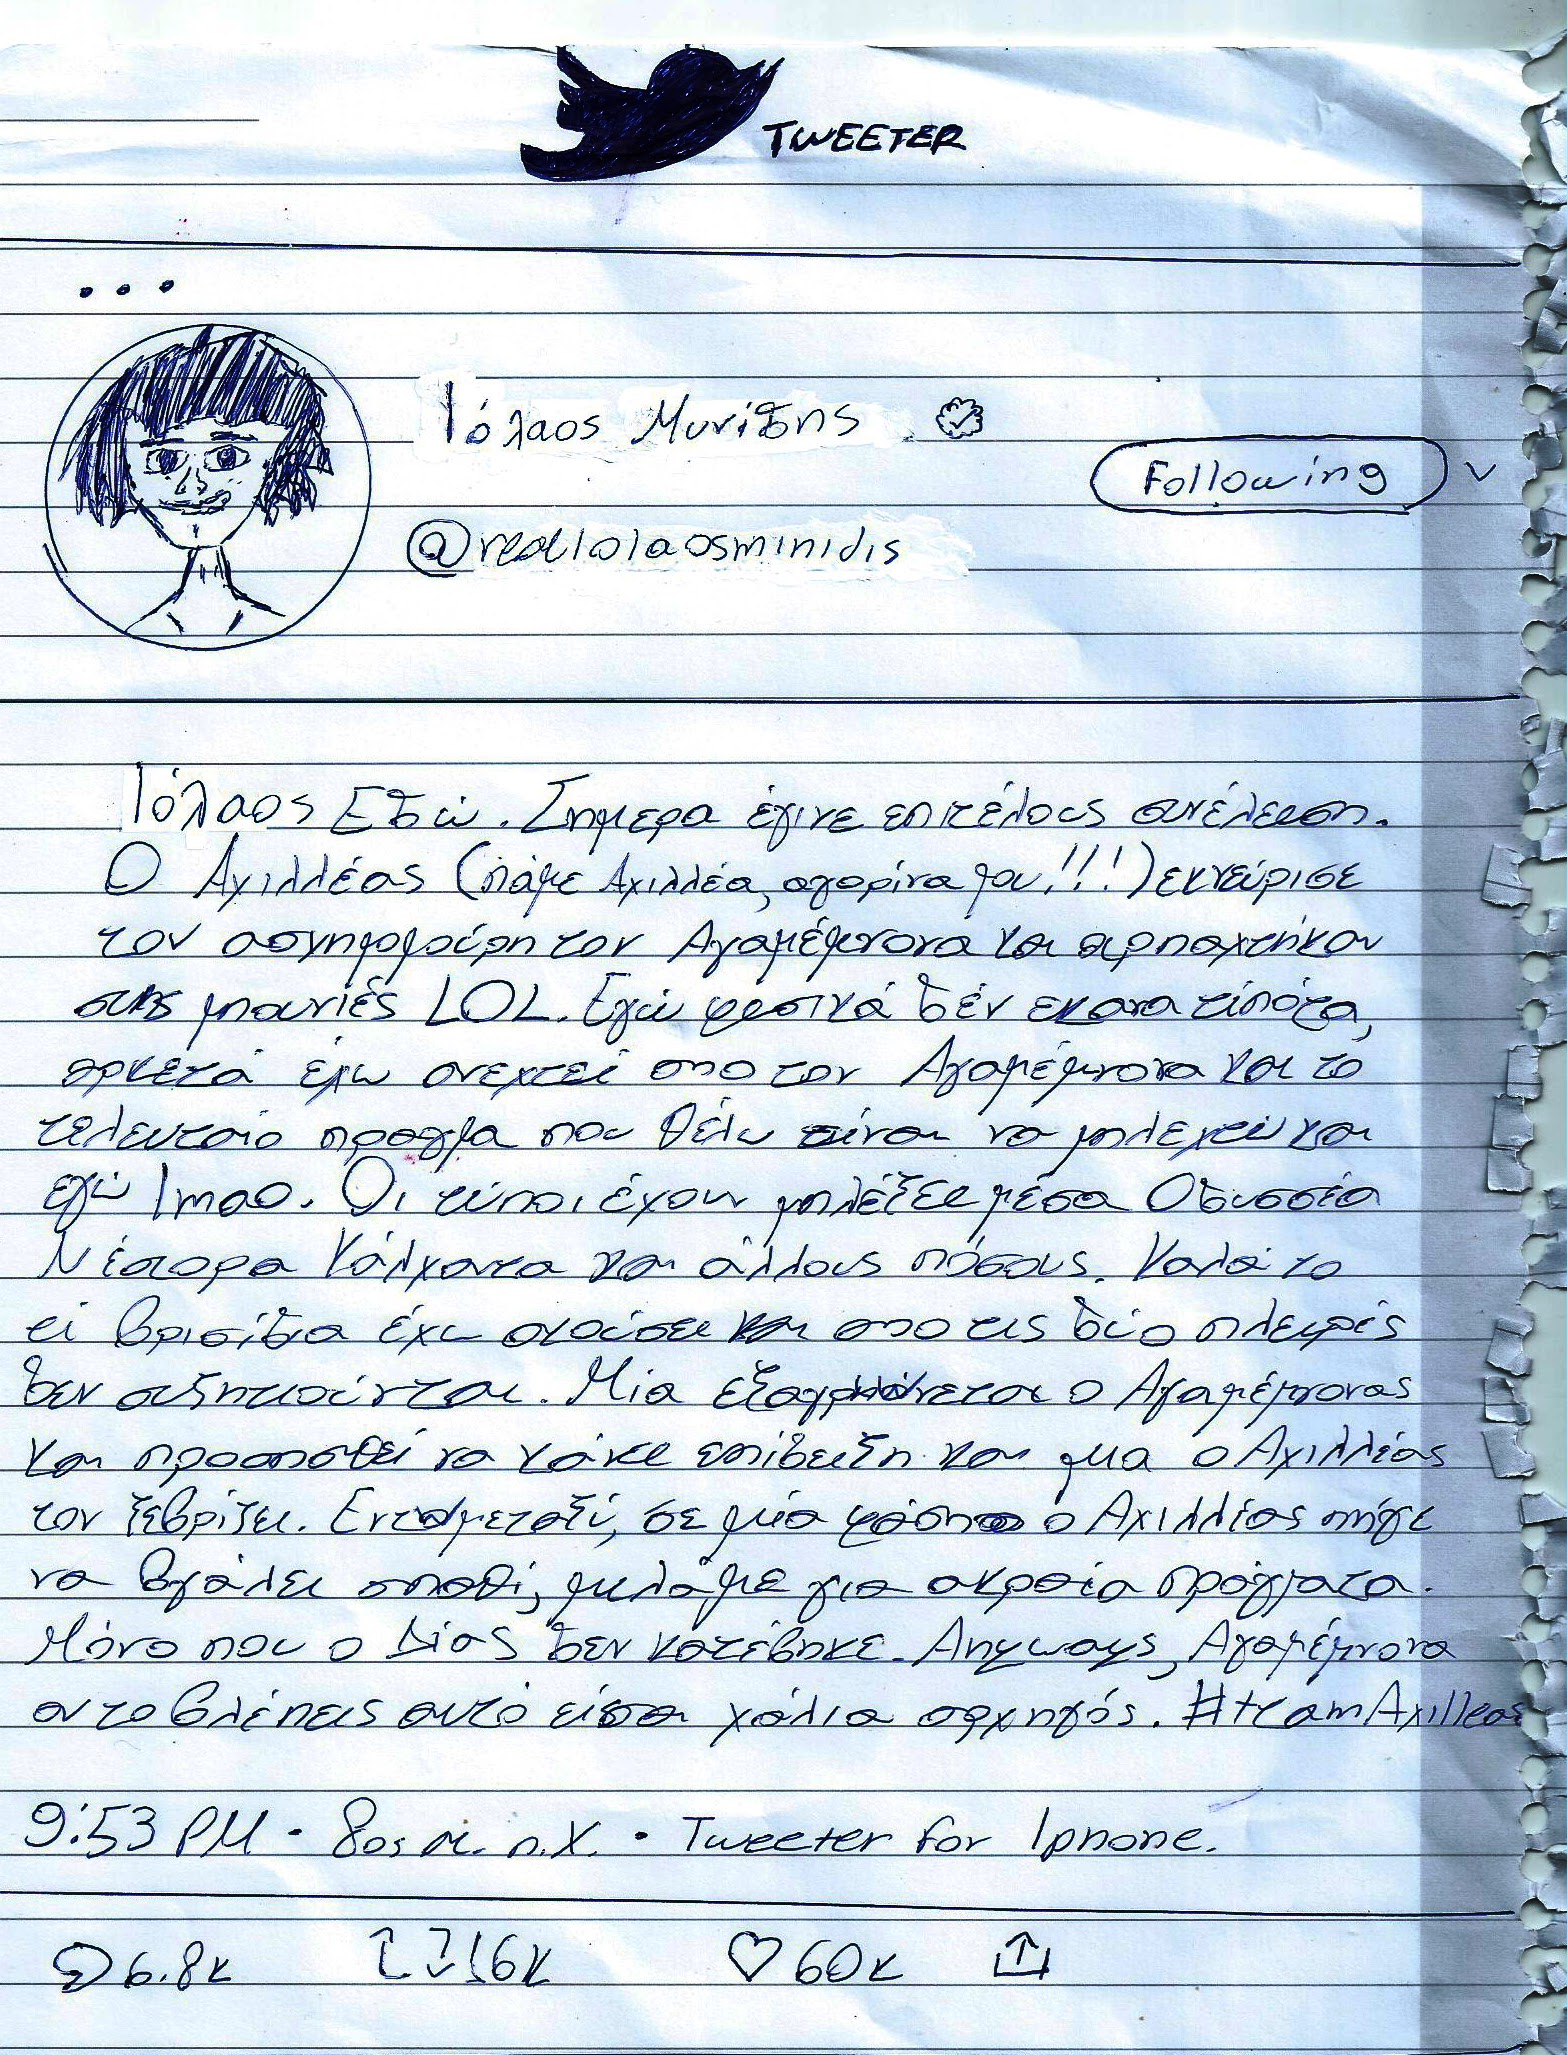 TWEETER
Ιόλαος Μυνίδης
Following
@realIolaosminidis
Ιόλαος Εδώ. Σήμερα έγινε επιτέλους συνέλευση.
Ο Αχιλλέας (πάμε Αχιλλέα, αγορίνα μου!!!) εκνεύρισε
τον ασχημομούρη τον Αγαμέμνονα και αρπαχτήκαν
στις μπουνιές LOL. Εγώ φυσικά δέν εκανα τίποτα,
αρκετά έχω ανεχτεί απο τον Αγαμέμνονα και το
τελευταίο πραγμα που θέλω είναι να μπλεχτώ και
εγώ lmao. Οι τύποι έχουν μπλέξει μέσα Οδυσσέα
Νέστορα Κάλχαντα και άλλους πόσους. Καλά το
τι βρισίδια έχω ακούσει και απο τις δύο πλευρές
δεν συζητιούνται. Μία εξαγριώνεται ο Αγαμέμνονας
και προσπαθεί να κάνει επίδειξη και μια ο Αχιλλέας
τον ξεβρίζει. Ενταμεταξύ, σε μία φάση ο Αχιλλέας πήγε
να βγάλει σπαθί, μιλάμε για ακραία πράγματα.
Μόνο που ο Δίας δεν κατέβηκε. Anyways, Αγαμέμνονα
αν το βλέπεις αυτό είσαι χάλια αρχηγός. #teamAxilleas
9:53 PM · 8ος αι. π.Χ. · Tweeter for Iphone.
6.8k 16k 60k